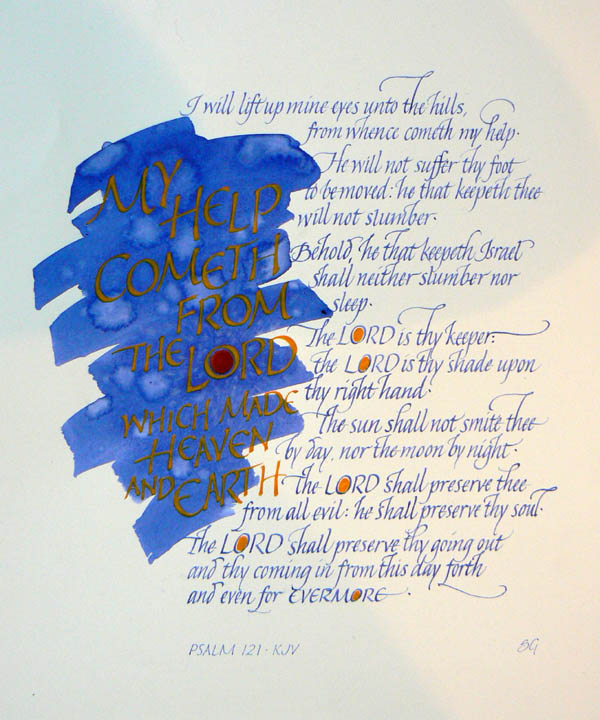 I will lift up mine eyes unto the hills,
from whence cometh my help.
MY
HELP
COMETH
FROM
THE LORD
WHICH MADE
HEAVEN
AND EARTH
He will not suffer thy foot
to be moved: he that keepeth thee
will not slumber.
Behold, he that keepeth Israel
shall neither slumber nor
sleep.
The LORD is thy keeper:
the LORD is thy shade upon
thy right hand.
The sun shall not smite thee
by day, nor the moon by night.
The LORD shall preserve thee
from all evil: he shall preserve thy soul.
The LORD shall preserve thy going out
and thy coming in from this day forth
and even for EVERMORE.
PSALM 121 · KJV
SG